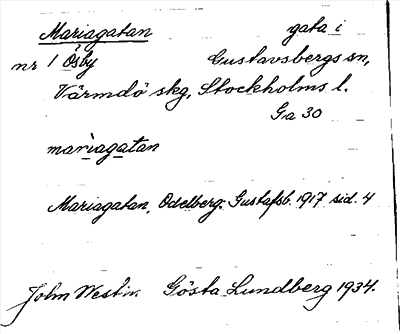 Mariagatan gata i
nr 1 Ösby Gustavsbergs sn,
Värmdö skg, Stockholms l.
Ga 30
marìagatan
Mariagatan, Odelberg: Gustafsb. 1917 sid. 4
John Westin. Gösta Lundberg 1934.